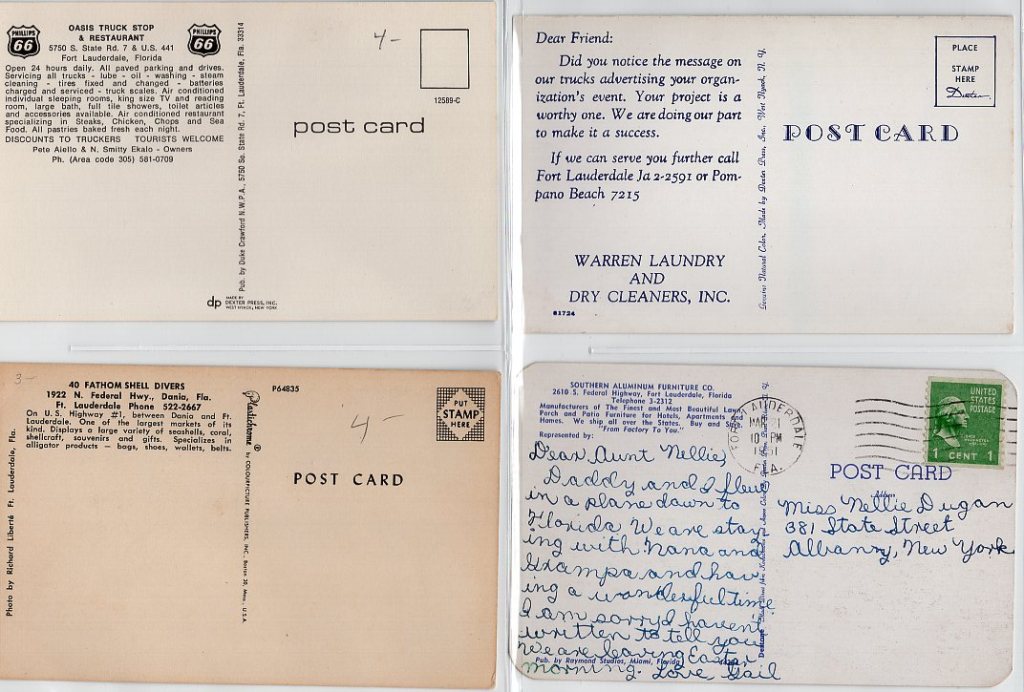 PHILLIPS
66
OASIS TRUCK STOP
& RESTAURANT
PHILLIPS
66
5750 S. State Rd. 7 & U.S. 441
Fort Lauderdale, Florida
Open 24 hours daily. All paved parking and drives.
Servicing all trucks - lube - oil - washing - steam
cleaning - tires fixed and changed - batteries
charged and serviced - truck scales. Air conditioned
individual sleeping rooms, king size TV and reading
room, large bath, full tile showers, toilet articles
and accessories available. Air conditioned restaurant
specializing in Steaks, Chicken, Chops and Sea
Food. All pastries baked fresh each night.
DISCOUNTS TO TRUCKERS TOURISTS WELCOME
Pete Aiello & N. Smitty Ekalo - Owners
Ph. (Area code 305) 581-0709
Pub. by Duke Crawford N.W.P.A., 5750 So. State Rd. 7, Ft. Lauderdale, Fla. 33314
4-
12589-C
post card
dp
MADE BY
DEXTER PRESS, INC.
WEST NYACK, NEW YORK
Dear Friend:
Did you notice the message on
our trucks advertising your organ-
ization's event. Your project is a
worthy one. We are doing our part
to make it a success.
If we can serve you further call
Fort Lauderdale Ja 2-2591 or Pom-
pano Beach 7215
WARREN LAUNDRY
AND
DRY CLEANERS, INC.
61724
Genuine Natural Color, Made by Dexter Press, Inc., West Nyack, N. Y.
PLACE
STAMP
HERE
Dexter
POST CARD
3-
40 FATHOM SHELL DIVERS
1922 N. Federal Hwy., Dania, Fla.
Ft. Lauderdale Phone 522-2667
On U.S. Highway #1, between Dania and Ft.
Lauderdale. One of the largest markets of its
kind. Displays a large variety of seashells, coral,
shellcraft, souvenirs and gifts. Specializes in
alligator products - bags, shoes, wallets, belts.
Photo by Richard Liberté Ft. Lauderdale, Fla.
Plastichrome ®
by COLOURPICTURE PUBLISHERS, INC., Boston 30, Mass., U.S.A.
P64835
4
PUT
STAMP
HERE
POST CARD
SOUTHERN ALUMINUM FURNITURE CO.
2610 S. Federal Highway, Fort Lauderdale, Florida
Telephone 3-2312
Manufacturers of The Finest and Most Beautiful Lawn,
Porch and Patio Furniture for Hotels, Apartments and
Homes. We ship all over the States. Buy and Save
"From Factory To You"
Represented by:
Dear Aunt Nellie,
Daddy and I flew
in a plane down to
Florida We are stay
ing with Nana and
Grampa and hav
ing a wonderful time
I am sorry I haven't
written to tell you
We are leaving Easter
morning. Love Gail
Pub. by Raymond Studios, Miami, Florida
FORT LAUDERDALE
MAR 21
10 PM
1951
FLA.
UNITED
STATES
POSTAGE
1 CENT 1
POST CARD
Address
Miss Nellie Dugan
381 State Street
Albany, New York